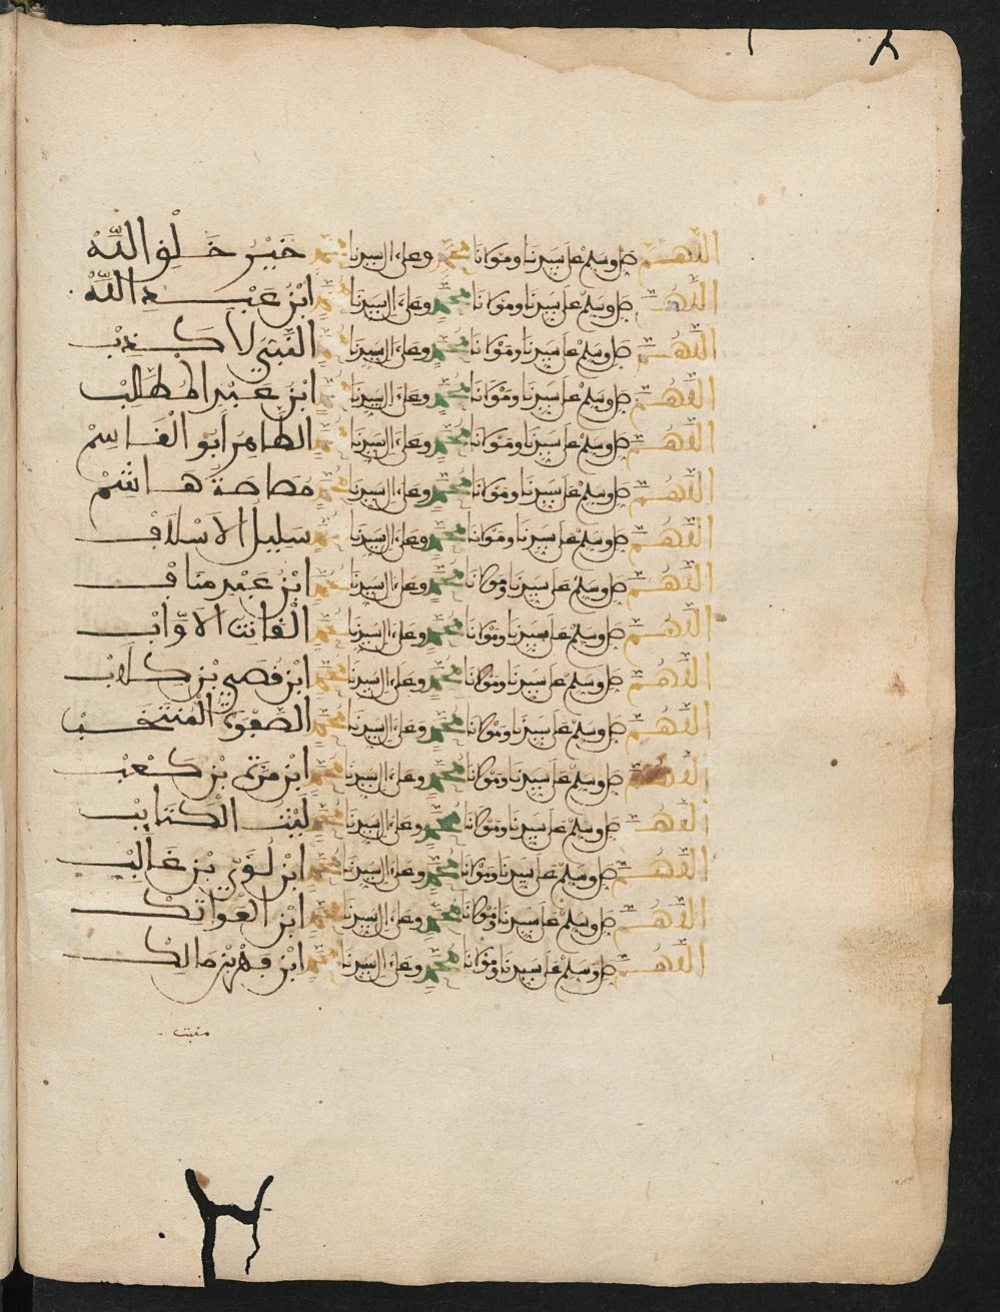 اللهم صل وسلم على سيدنا ومولانا محمد وعلى ءال سيدنا محمد خير خلق الله
اللهم صل وسلم على سيدنا ومولانا محمد وعلى ءال سيدنا محمد ابن عبد الله
اللهم صل وسلم على سيدنا ومولانا محمد وعلى ءال سيدنا محمد النبي لا كذب
اللهم صل وسلم على سيدنا ومولانا محمد وعلى ءال سيدنا محمد ابن عبد المطلب
اللهم صل وسلم على سيدنا ومولانا محمد وعلى ءال سيدنا محمد الطاهر أبو القاسم
اللهم صل وسلم على سيدنا ومولانا محمد وعلى ءال سيدنا محمد مصاصة هاشم
اللهم صل وسلم على سيدنا ومولانا محمد وعلى ءال سيدنا محمد سليل الأسلاف
اللهم صل وسلم على سيدنا ومولانا محمد وعلى ءال سيدنا محمد ابن عبد مناف
اللهم صل وسلم على سيدنا ومولانا محمد وعلى ءال سيدنا محمد القانت الأواب
اللهم صل وسلم على سيدنا ومولانا محمد وعلى ءال سيدنا محمد ابن قصي بن كلاب
اللهم صل وسلم على سيدنا ومولانا محمد وعلى ءال سيدنا محمد الصفوة المنتخب
اللهم صل وسلم على سيدنا ومولانا محمد وعلى ءال سيدنا محمد ابن مرة بن كعب
اللهم صل وسلم على سيدنا ومولانا محمد وعلى ءال سيدنا محمد ليث الكتايب
اللهم صل وسلم على سيدنا ومولانا محمد وعلى ءال سيدنا محمد ابن لؤي بن غالب
اللهم صل وسلم على سيدنا ومولانا محمد وعلى ءال سيدنا محمد ابن العواتك
اللهم صل وسلم على سيدنا ومولانا محمد وعلى ءال سيدنا محمد ابن فهر بن مالك